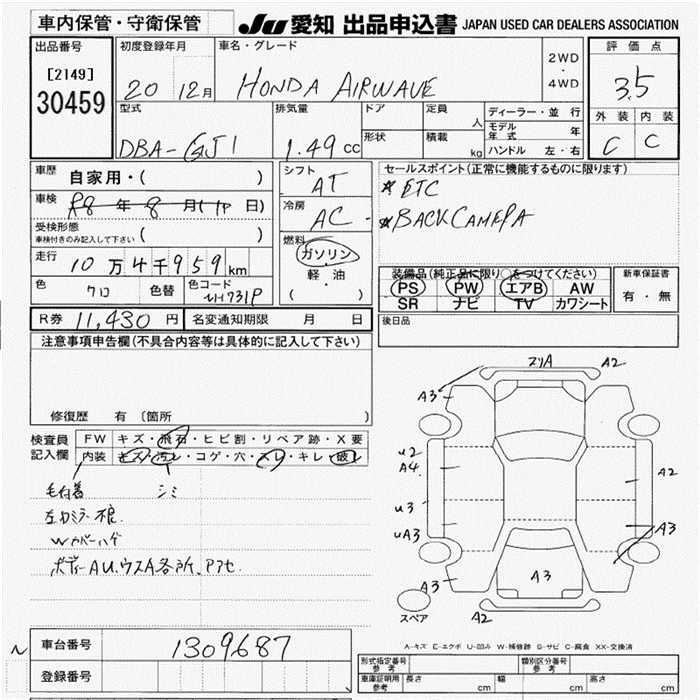 車内保管・守衛保管
JU 愛知 出品申込書 JAPAN USED CAR DEALERS ASSOCIATION
出品番号
[2149]
30459
初度登録年月
20 12月
車名・グレード
HONDA AIRWAVE
2WD
・
4WD
評価点
3.5
外装 内装
C C
型式
DBA-GJ1
排気量
1.49 cc
ドア
形状
定員 人
積載 kg
ディーラー・並行
モデル年式 年
ハンドル 左・右
車歴 自家用・( )
車検 R8年8月(11日)
受検形態
車検付きのみ記入して下さい ( )
走行 10万4千959km
色 クロ 色替 色コード NH731P
シフト AT
冷房 AC
燃料
ガソリン
軽・油
( )
セールスポイント(正常に機能するものに限ります)
*ETC
*BACK CAMERA
装備品(純正品に限り○をつけてください)
PS PW エアB AW
SR ナビ TV カワシート
新車保証書
有・無
R券 11,430円 名変通知期限 月 日
後日品
注意事項申告欄(不具合内容等は具体的に記入して下さい)
修復歴 有 〔箇所 〕
検査員
記入欄
FW キズ・飛石・ヒビ割・リペア跡・X要
内装 キズ・汚レ・コゲ・穴・スレ・キレ・破レ
毛付着 シミ
左カミラー不良
Wカバーハゲ
ボディーAU.ウスA各所.Pアセ.
スリA A2
A3
u2
A4
A2
u3
uA3
A3
A3
A3
A2
スペア
A-キズ E-エクボ U-凹み W-補修跡 S-サビ C-腐食 XX-交換済
車台番号 1309687
登録番号
型式指定番号 参考
類別区分番号 参考
車庫証明用 参考 長さ cm 幅 cm 高さ cm